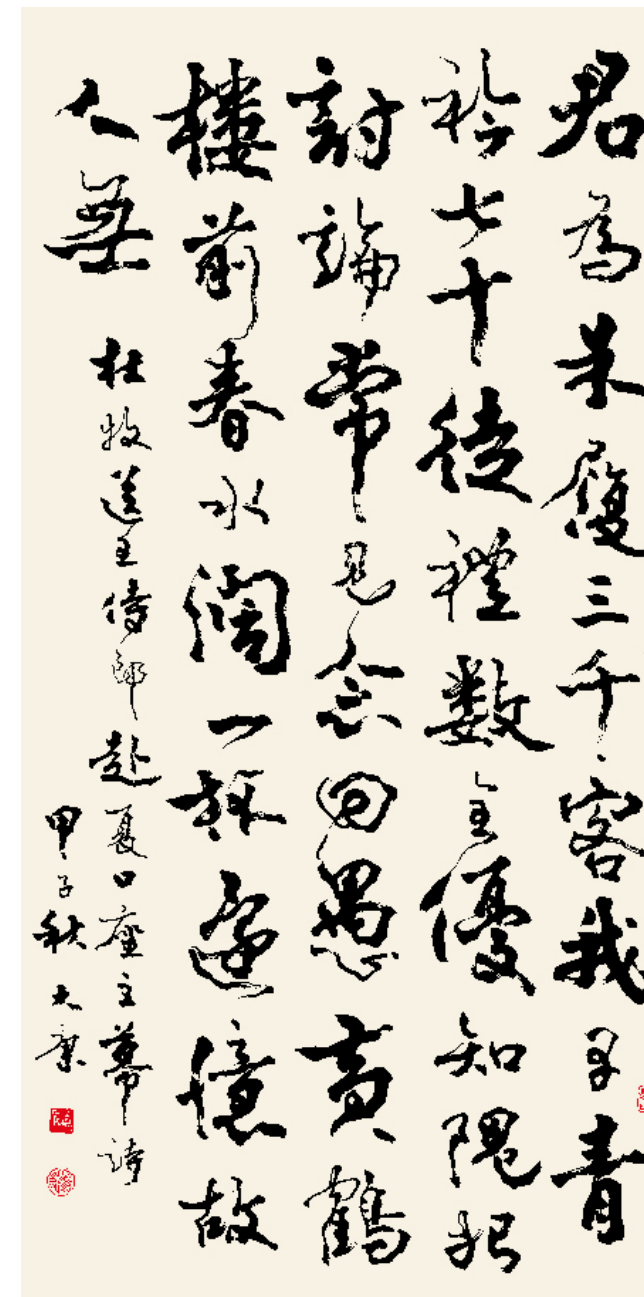 君為朱履三千客我是青
衿七十徒禮數全優知隗始
討論常見念回愚黃鶴
樓前春水闊一杯還憶故
人無
杜牧送王侍郎赴夏口座主幕詩
甲子秋大康